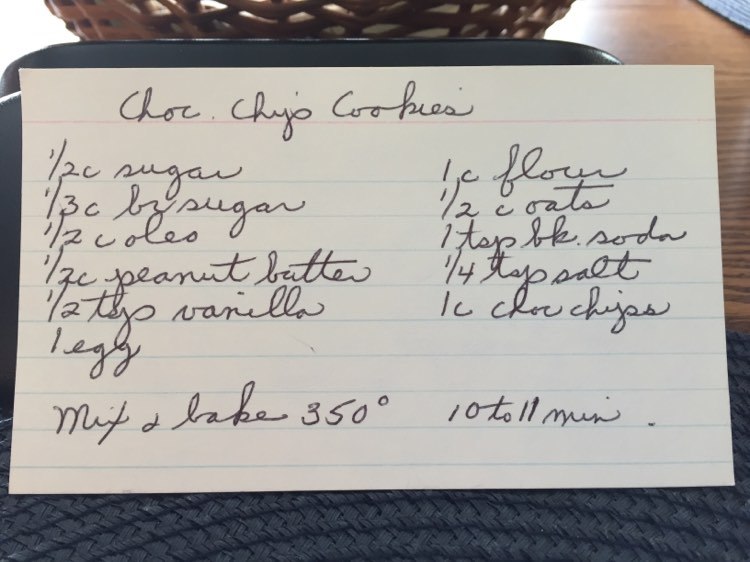 Choc. Chips Cookies
1/2c sugar
1/3c br sugar
1/2c oleo
1/2c peanut butter
1/2 tsp vanilla
1 egg
1c flour
1/2 c oats
1 tsp bk. soda
1/4 tsp salt
1c choc chips
Mix & bake 350° 10 to 11 min.